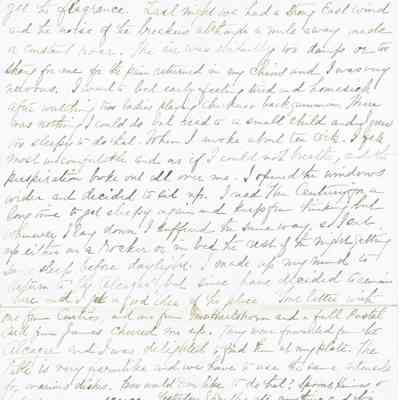 get the fragrance. Last night we had a strong East wind
and the noise of the breakers although a mile away made
a constant roar. The air was too damp or too
strong for me for the pain returned in my chest and I was very
nervous. I went to bed early feeling tired and homesick
after watching two ladies playing checkers backgammon. There
was nothing I could do but read to a small child and
too sleepy to do that. When I awoke about ten oclock I felt
most uncomfortable and as if I could not breathe, and the
perspiration broke out all over me. I opened the windows
wider and decided to sit up. I read the Century for a
long time to get sleepy again and keep from thinking but
whenever I lay down I suffered the same way, so I sat
up either in a rocker or in bed the rest of the night, getting
some sleep before daylight. I made up my mind to
return to but since have decided to remain
here until I get a good idea of the place. Your letter with
one from and one from and a full Postal
Card from James cheered me up. They were forwarded from the
and I was delighted to find them at my plate. The
table is very and we have to use the same utensils
for various dishes. How would you like to do that?